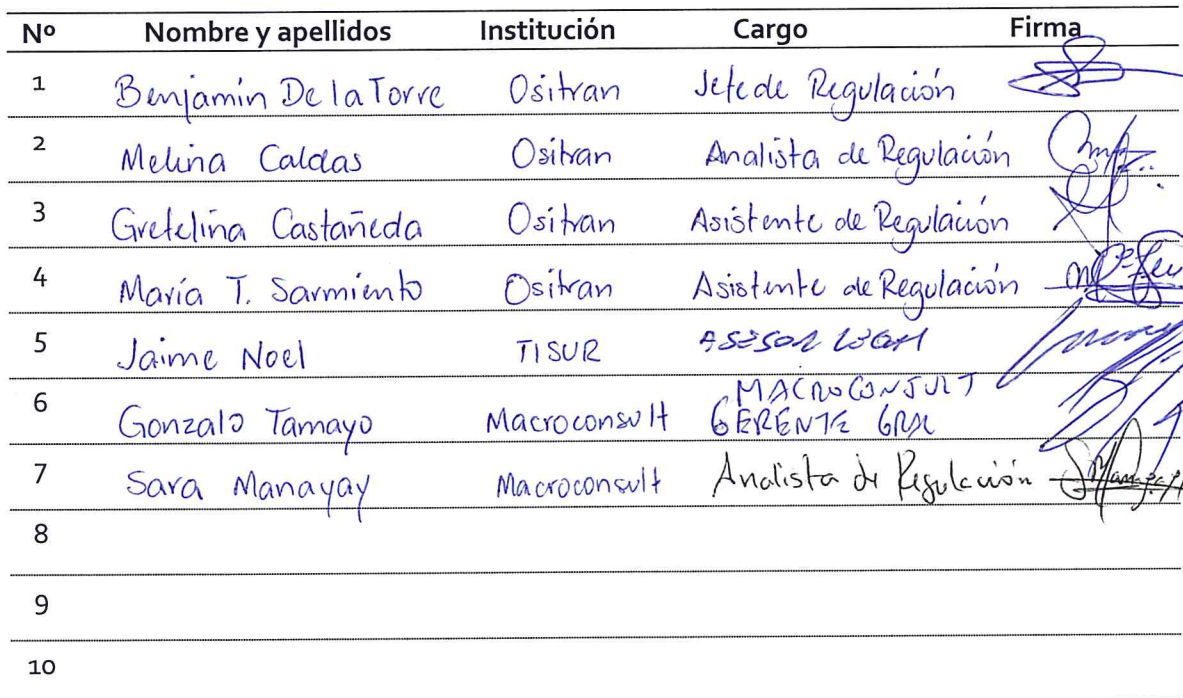 Nº Nombre y apellidos Institución Cargo Firma
1 Benjamín De la Torre Ositran Jefe de Regulación
2 Melina Caldas Ositran Analista de Regulación
3 Gretelina Castañeda Ositran Asistente de Regulación
4 María T. Sarmiento Ositran Asistente de Regulación
5 Jaime Noel TISUR ASESOR LEGAL
MACROCONSULT
6 Gonzalo Tamayo Macroconsult GERENTE GRAL
7 Sara Manayay Macroconsult Analista de Regulación
8
9
10